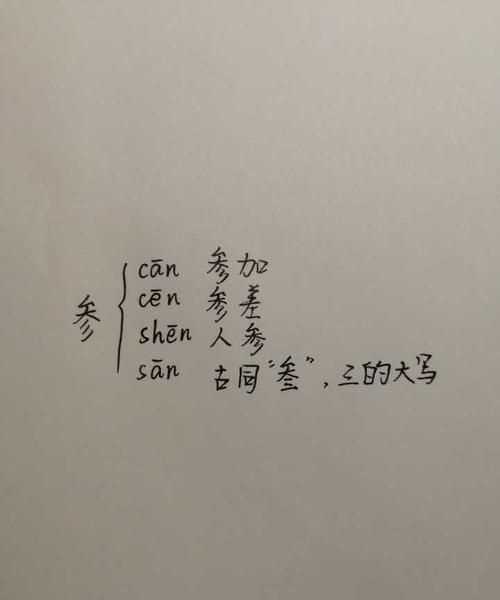 参
cān 参加
cēn 参差
shēn 人参
sān 古同“叁”,三的大写